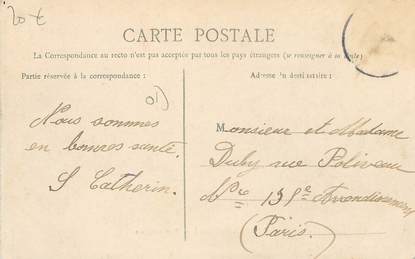 20 €
CARTE POSTALE
La Correspondance au recto n'est pas acceptée par tous les pays étrangers (se renseigner à la Poste)
Partie réservée à la correspondance :
Adresse du destinataire :
Nous sommes
en bonnes santé.
S Catherin.
Monsieur et Madame
Duby rue Poliveau
13e Arrondissement
(Paris.)